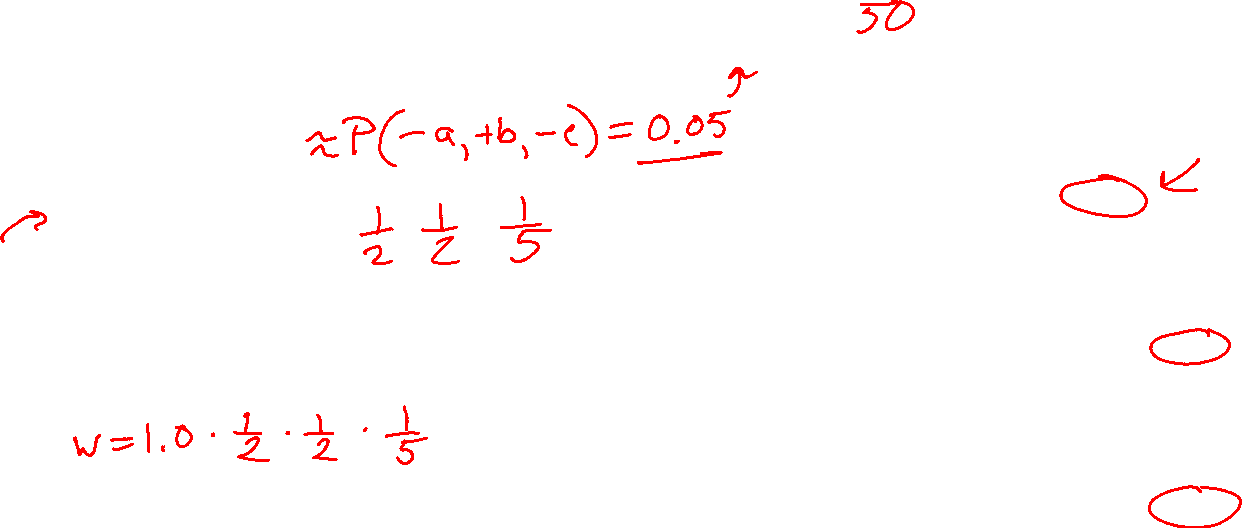 50
≈P(-a,+b,-c)=0.05
1/2 1/2 1/5
w=1.0·1/2·1/2·1/5